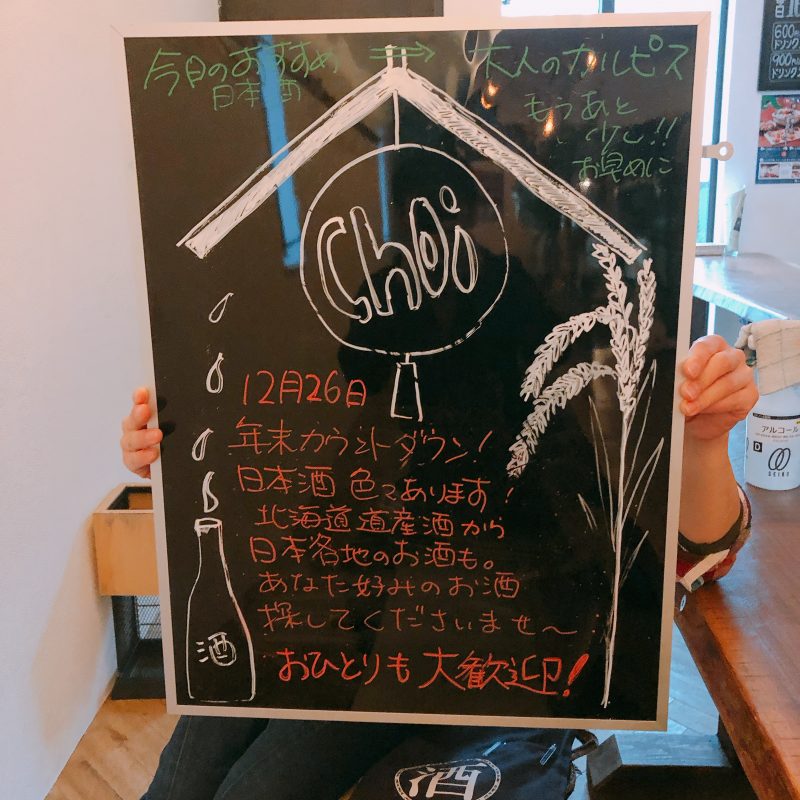 今日のおすすめ ⇒ 大人のカルピス
日本酒
もうあと
少し!!
お早めに
choi
12月26日
年末カウントダウン!
日本酒 色々あります!
北海道 道産酒から
日本各地のお酒も。
あなた好みのお酒
探してくださいませ〜
おひとりも 大歓迎!
酒
酒
600
ドリンク
900
ドリンク
アルコール
D